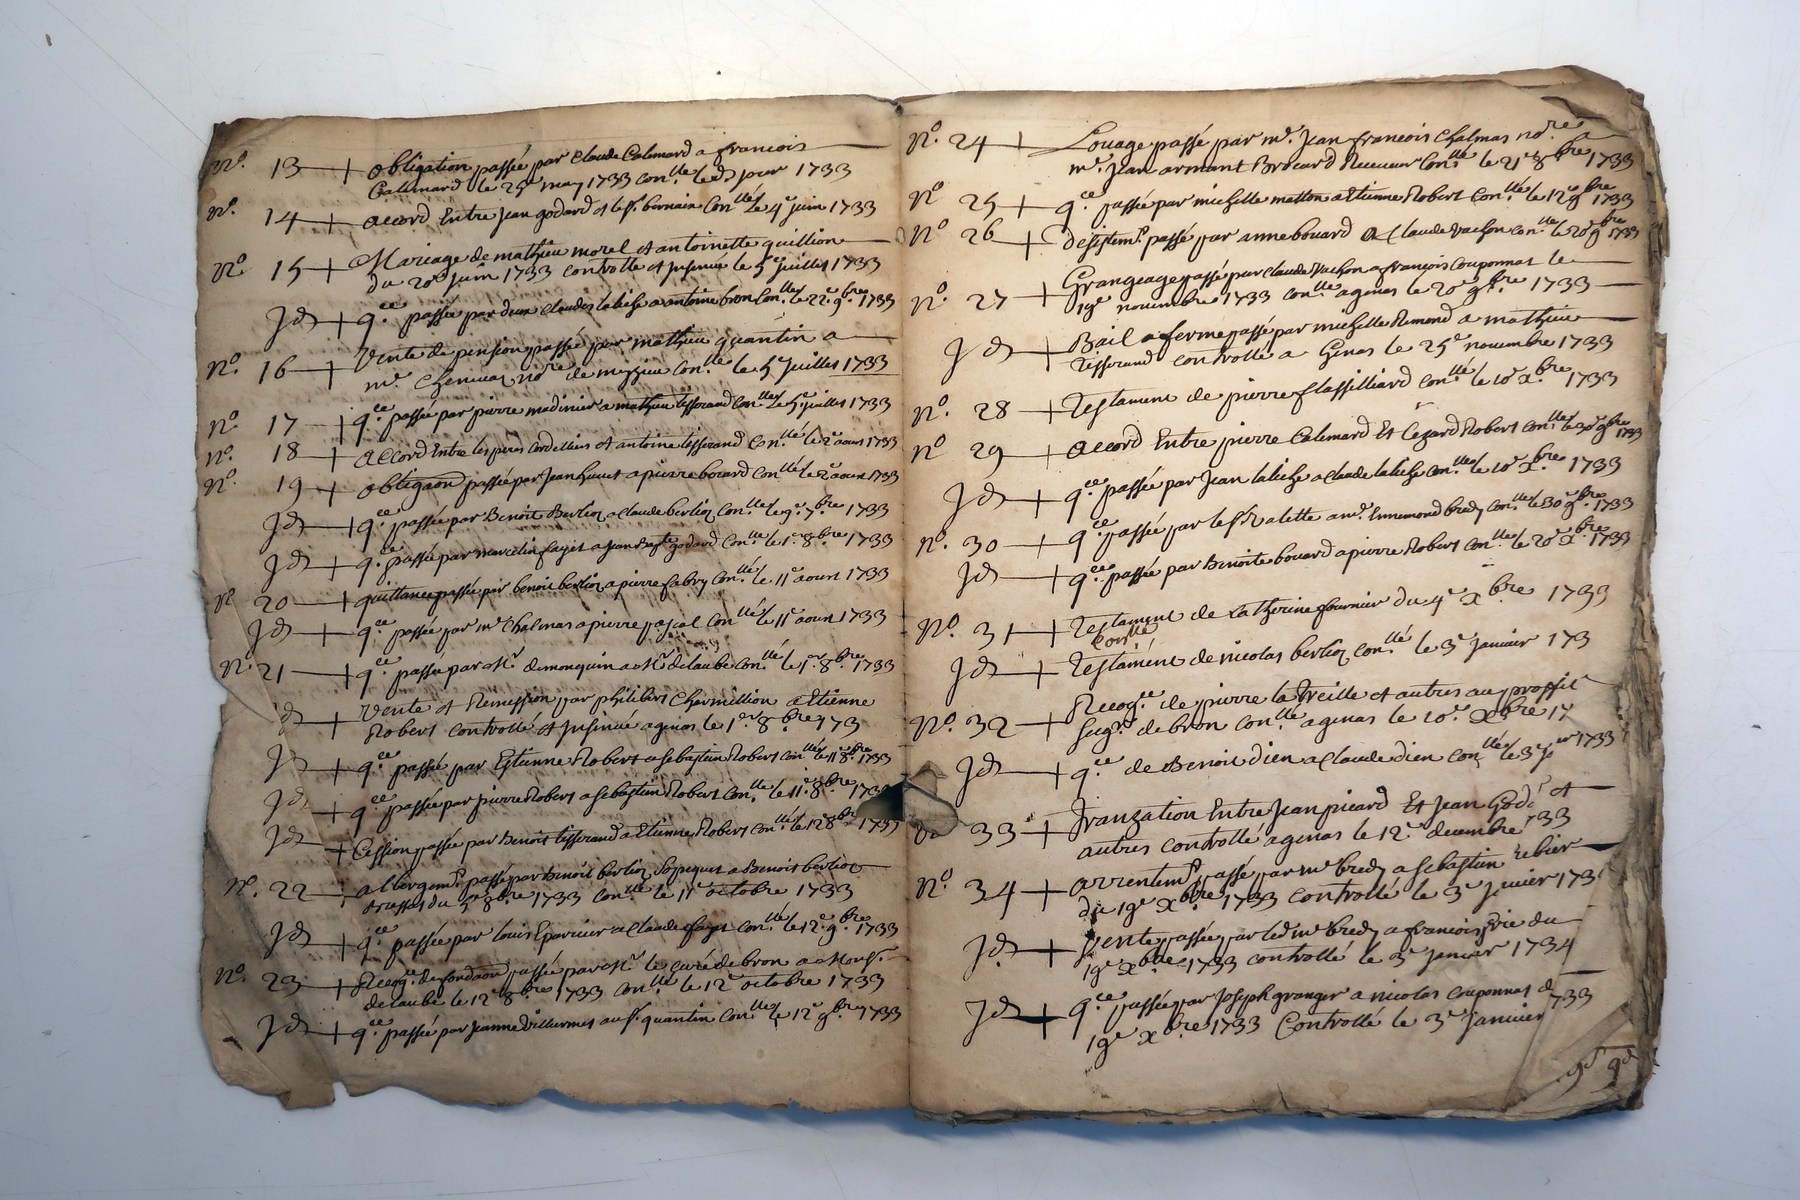 N.o 13 + obligation passée par Claude Calemard a francois
Calemard le 25e may 1733 con.llé led. jour 1733
N.o 14 + accord Entre Jean godard et le Sr. bernain Con.llé le 4e juin 1733
N.o 15 + Mariage de mathieu morel et antoinette guillion
du 20e Juin 1733 controllé et Insinué le 5e Juillet 1733
Jd + q.ce passée par deux Claudes labize a antoine bron Con.llé le 22e 9.bre 1733
N.o 16 + Vente de pension passée par mathieu quantin a
m.e Chenivaz no.re de meyzieu Con.llé le 5e Juillet 1733
N.o 17 + q.ce passée par pierre medinier a mathieu tisserand Con.llé le 5e juillet 1733
N.o 18 + accord Entre les peres Cordelliers et antoine tisserand Con.llé le 2e aoust 1733
N.o 19 + obligaon passée par Jean huuet a pierre bouard Con.llé le 2e aoust 1733
Jd + q.ce passée par Benoit Berlioz a Claude berlioz Con.llé le 9e 7.bre 1733
Jd + q.ce passée par marcelin fayet a Jean Bap.te godard Con.llé le 1.er 8.bre 1733
N 20 + quittance passée par benoit berlioz a pierre fabry Con.llé le 11e aoust 1733
Jd + q.ce passée par m.e Chalmas a pierre pascal Con.llé le 11e aoust 1733
N. 21 + q.ce passée par M.r demonquin a M.r delaube Con.llé le 1.er 8.bre 1733
Jd + Vente et Remission par philibert Charmillion a Etienne
Robert controllé et Insinué a genas le 1.er 8.bre 173
Jd + q.ce passée par Estienne Robert a Sebastien Robert Con.llé le 11e 8.bre 1733
Jd + q.ce passée par pierre Robert a Sebastien Robert Con.llé le 11e 8.bre 1733
Jd + Cession passée par Benoit tisserand a Etienne Robert Con.llé le 12e 8bre 1733
N.o 22 + albergem.t passé par Benoit berlioz a Benoit berlioz
du 5e 8.bre 1733 con.llé le 11e octobre 1733
Jd + q.ce passée par Louis Eparvier a Claude fayet Con.llé le 12e 9.bre 1733
N.o 23 + Recog.ce de fondaon passée par M.r le curé de bron a Mons.r
delaube le 12e 8bre 1733 con.llé le 12e octobre 1733
Jd + q.ce passée par Jeanne Villermet au Sr. quantin Con.llé le 12e 9.bre 1733
N.o 24 + Louage passé par m.e Jean francois Chalmas no.re a
m.e Jean armant Brocard Receveur Con.llé le 21e 8bre 1733
N.o 25 + q.ce passée par michelle matton a Etienne Robert Con.llé le 12e 9bre 1733
N.o 26 + desistem.t passé par anne bouard a Claude Vachon con.llé le 20e 9bre 1733
N.o 27 + Grangeage passé par Claude Vachon a francois Couponnat le
19e novembre 1733 con.llé a genas le 20e 9.bre 1733
Jd + Bail a ferme passé par michelle Remond a mathieu
Tisserand controllé a Genas le 25e novembre 1733
N.o 28 + Testament de pierre flassilliard con.llé le 10e x.bre 1733
N.o 29 + accord Entre pierre Calemard Et Cezard Robert con.llé le 30e 9bre 1733
Jd + q.ce passée par Jean labize a Claude labize con.llé le 10e x.bre 1733
N.o 30 + q.ce passée par le Sr. Valette a m.e Ennemond bredy con.llé le 30e 9.bre 1733
Jd + q.ce passée par Benoite bouard a pierre Robert con.llé le 20e x.bre 1733
N.o 31 + Testament de Catherine fournier du 4e x.bre 1733
con.llé
Jd + Testament de nicolas berlioz con.llé le 3e Janvier 173
N.o 32 + Recog.ce de pierre la treille et autres au proffit
Seig.r de bron con.llé a genas le 10e xbre 17
Jd + q.ce de Benoit dien a Claude dien con.llé le 3e jer 1733
N.o 33 + Tranzation Entre Jean picard Et Jean God et
autres controllé a genas le 12e decembre 733
N.o 34 + arrentem.t passé par m.e bredy a Sebastien rebier
du 19e xbre 1733 controllé le 3e Janvier 173
Jd + Vente passée par led. m.e bredy a francois frie du
19e xbre 1733 controllé le 3e Janvier 1734
Jd + q.ce passée par Joseph granger a nicolas Couponnat d
19e xbre 1733 Controllé le 3e Janvier 733